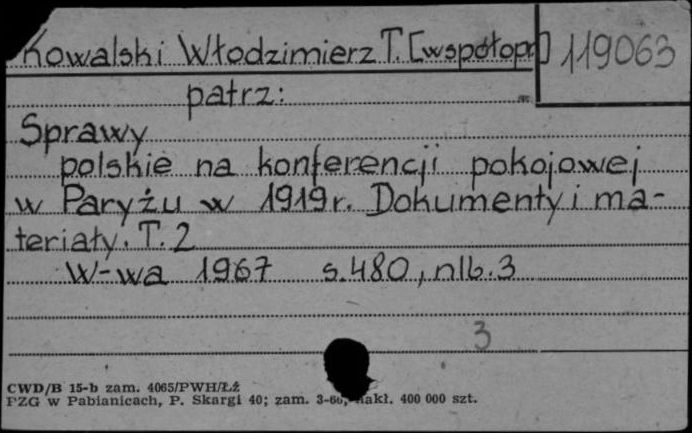 Kowalski Włodzimierz T. [współopr.] 119063
patrz:
Sprawy
polskie na konferencji pokojowej
w Paryżu w 1919 r. Dokumenty i ma-
teriały. T. 2
W-wa 1967 s. 480, nlb. 3
3
CWD/B 15-b zam. 4065/PWH/Łź
PZG w Pabianicach, P. Skargi 40; zam. 3-66, nakł. 400 000 szt.